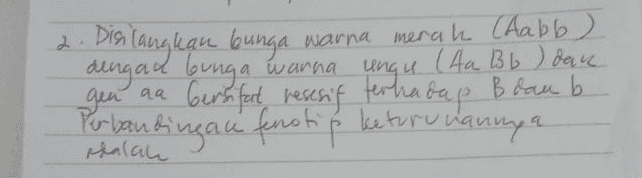 2. Disilangkan bunga warna merah (Aabb)
dengan bunga warna ungu (Aa Bb) dan
gen aa bersifat resesif terhadap B dan b
Perbandingan fenotip keturunannya
adalah